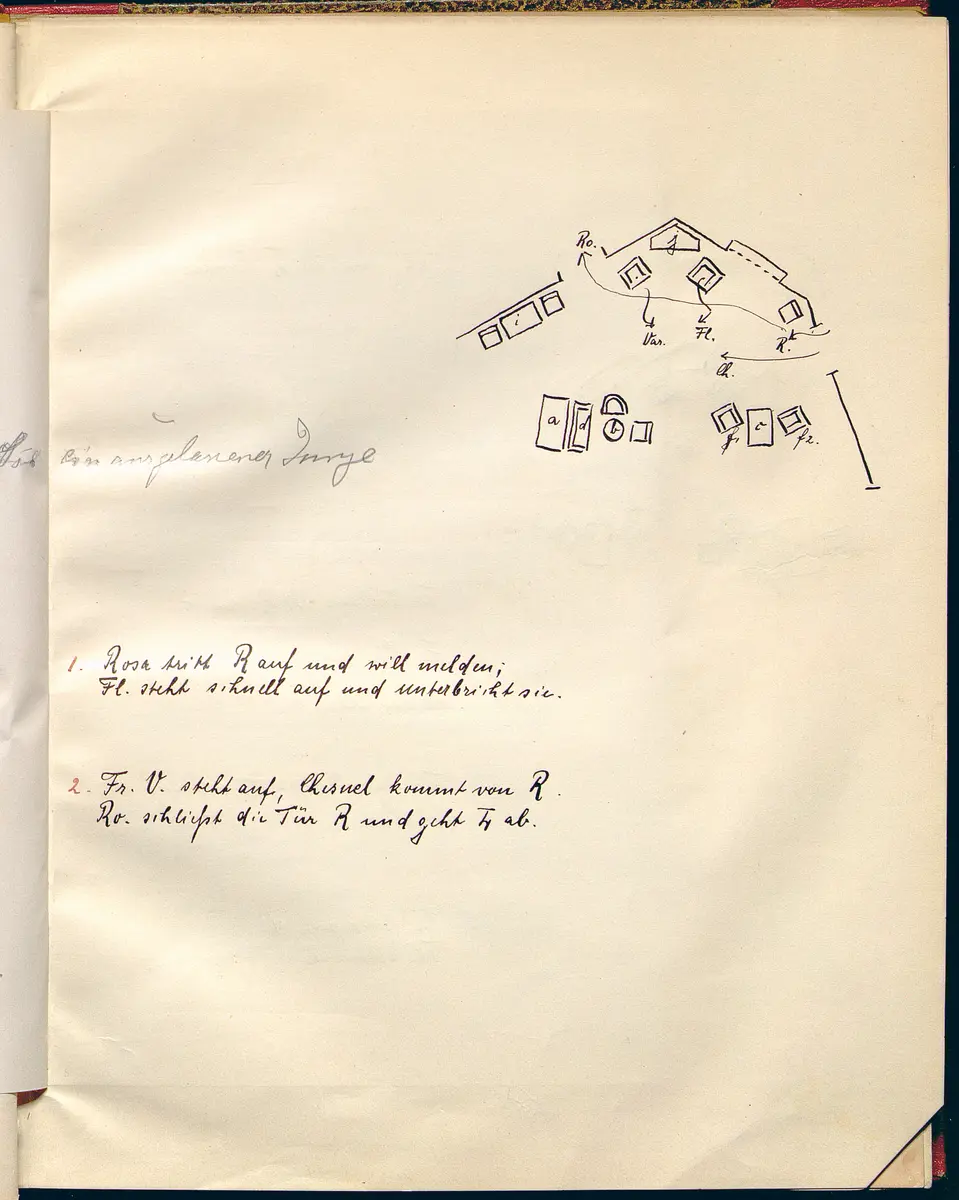 Ro.
j
i
Var.
Fl.
R.
Ch.
a
d
b
f1
c
f2.
ein ausgelassener Junge
1. Rosa tritt R auf und will melden;
Fl. steht schnell auf und unterbricht sie.
2. Fr. V. steht auf, Chesnel kommt von R.
Ro. schließt die Tür R und geht ab.